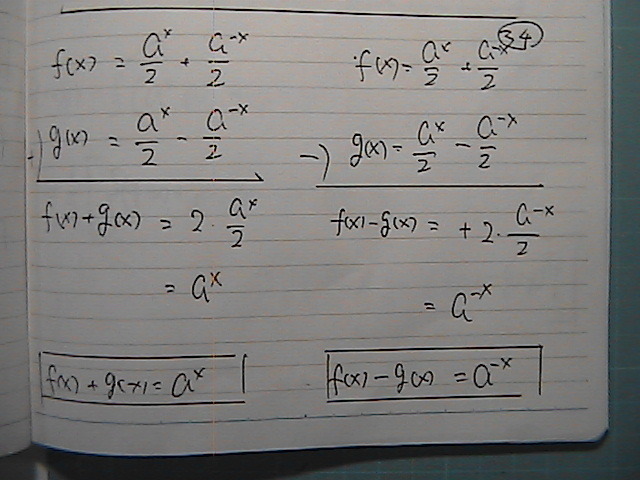 34
f(x) = a^x/2 + a^-x/2
-) g(x) = a^x/2 - a^-x/2
f(x)+g(x) = 2・a^x/2
= a^x
f(x) + g(x) = a^x
f(x) = a^x/2 + a^-x/2
-) g(x) = a^x/2 - a^-x/2
f(x)-g(x) = +2・a^-x/2
= a^-x
f(x) - g(x) = a^-x